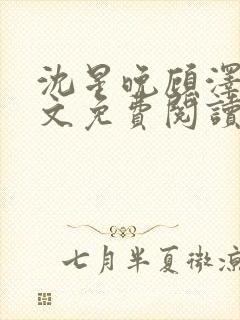 沈星晚顾泽
文免費閱讀
七月半夏微凉